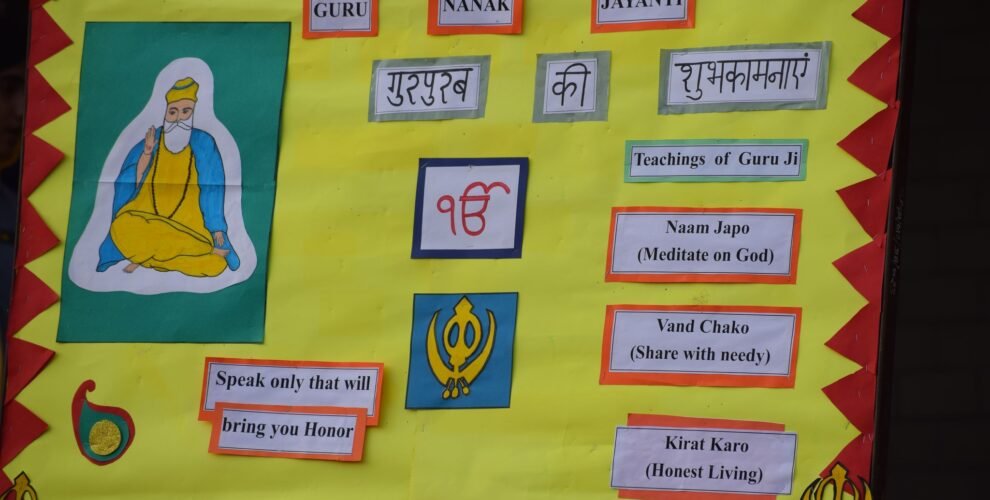 GURU NANAK JAYANTI
गुरपुरब की शुभकामनाएं
Teachings of Guru Ji
ੴ
Naam Japo
(Meditate on God)
Vand Chako
(Share with needy)
Speak only that will
bring you Honor
Kirat Karo
(Honest Living)